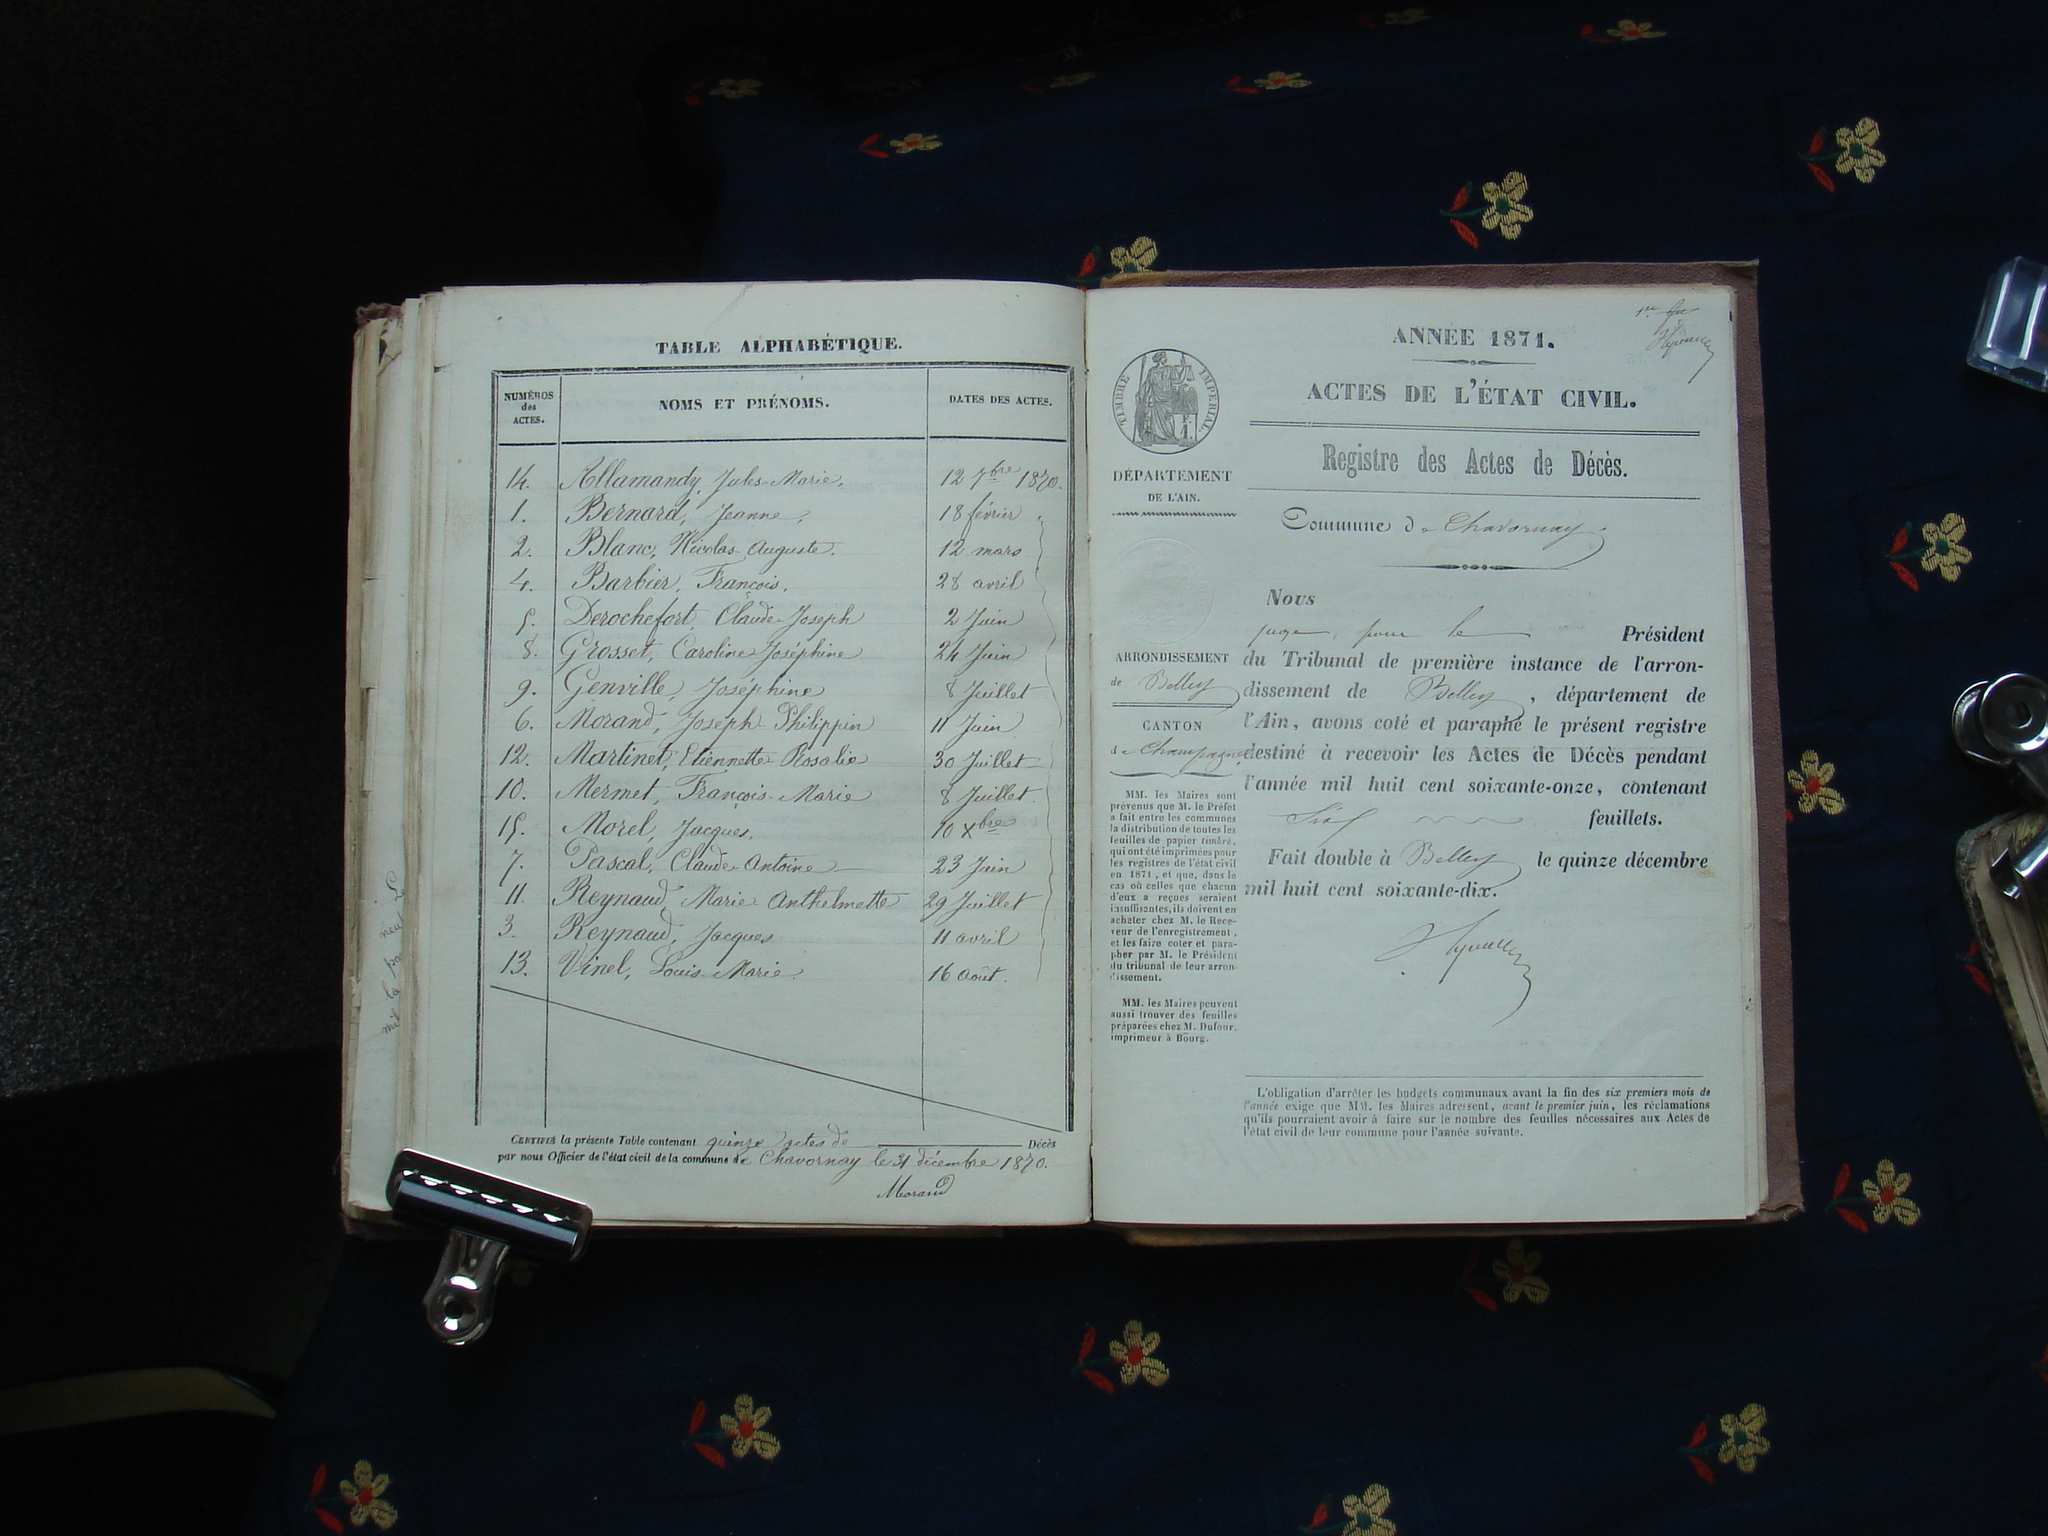 TABLE ALPHABÉTIQUE.
NUMÉROS des ACTES. NOMS ET PRÉNOMS. DATES DES ACTES.
14. Allamandy, Jules-Marie, 12 7bre 1870.
1. Bernard, Jeanne, 18 février
2. Blanc, Nicolas-Auguste. 12 mars
4. Barbier, François. 28 avril
5. Derochefort, Claude-Joseph 2 Juin
8. Grosset, Caroline Joséphine 24 Juin
9. Genville, Joséphine 8 Juillet
6. Morand, Joseph-Philippin 11 Juin
12. Martinet, Etiennette Rosalie 30 Juillet
10. Mermet, François-Marie 8 Juillet.
15. Morel, Jacques, 10 Xbre
7. Pascal, Claude-Antoine 23 Juin
11. Reynaud, Marie Anthelmette 29 Juillet
3. Reynaud, Jacques 11 avril
13. Vinel, Louis-Marie. 16 août.
CERTIFIÉ la présente Table contenant quinze actes de Décès
par nous Officier de l'état civil de la commune de Chavornay le 31 décembre 1870.
Morand
ANNÉE 1871.
ACTES DE L'ÉTAT CIVIL.
Registre des Actes de Décès.
Commune de Chavornay
TIMBRE IMPÉRIAL
DÉPARTEMENT
DE L'AIN.
ARRONDISSEMENT
de Belley
CANTON
de Champagne
MM. les Maires sont
prévenus que M. le Préfet
a fait entre les communes
la distribution de toutes les
feuilles de papier timbré,
qui ont été imprimées pour
les registres de l'état civil
en 1871, et que, dans le
cas où celles que chacun
d'eux a reçues seraient
insuffisantes, ils doivent en
acheter chez M. le Rece-
veur de l'enregistrement,
et les faire coter et para-
pher par M. le Président
du tribunal de leur arron-
dissement.
MM. les Maires peuvent
aussi trouver des feuilles
préparées chez M. Dufour,
imprimeur à Bourg.
Nous
juge, pour le Président
du Tribunal de première instance de l'arron-
dissement de Belley, département de
l'Ain, avons coté et paraphé le présent registre
destiné à recevoir les Actes de Décès pendant
l'année mil huit cent soixante-onze, contenant
feuillets.
Fait double à Belley le quinze décembre
mil huit cent soixante-dix.
L'obligation d'arrêter les budgets communaux avant la fin des six premiers mois de
l'année exige que MM. les Maires adressent, avant le premier juin, les réclamations
qu'ils pourraient avoir à faire sur le nombre des feuilles nécessaires aux Actes de
l'état civil de leur commune pour l'année suivante.